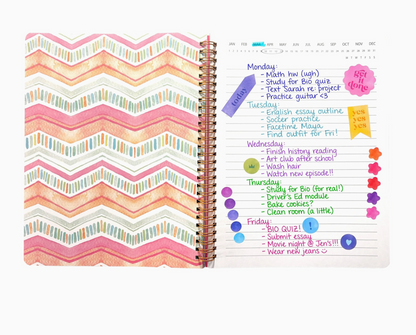 JAN FEB MAR APR MAY JUN JUL AUG SEP OCT NOV DEC
M T W T F S S
Monday:
- Math hw (ugh)
- Study for Bio quiz
- Text Sarah re: project
- Practice guitar <3
today
get it done
Tuesday:
- English essay outline
- Soccer practice
- Facetime Maya
- Find outfit for Fri!
yes
yes
yes
Wednesday:
- Finish history reading
- Art club after school
- Wash hair
- Watch new episode!!
Thursday:
- Study for Bio (for real!)
- Driver's Ed module
- Bake cookies?
- Clean room (a little)
Friday:
- BIO QUIZ!
- Submit essay
- Movie night @ Jen's!!!
- Wear new jeans ☺
!